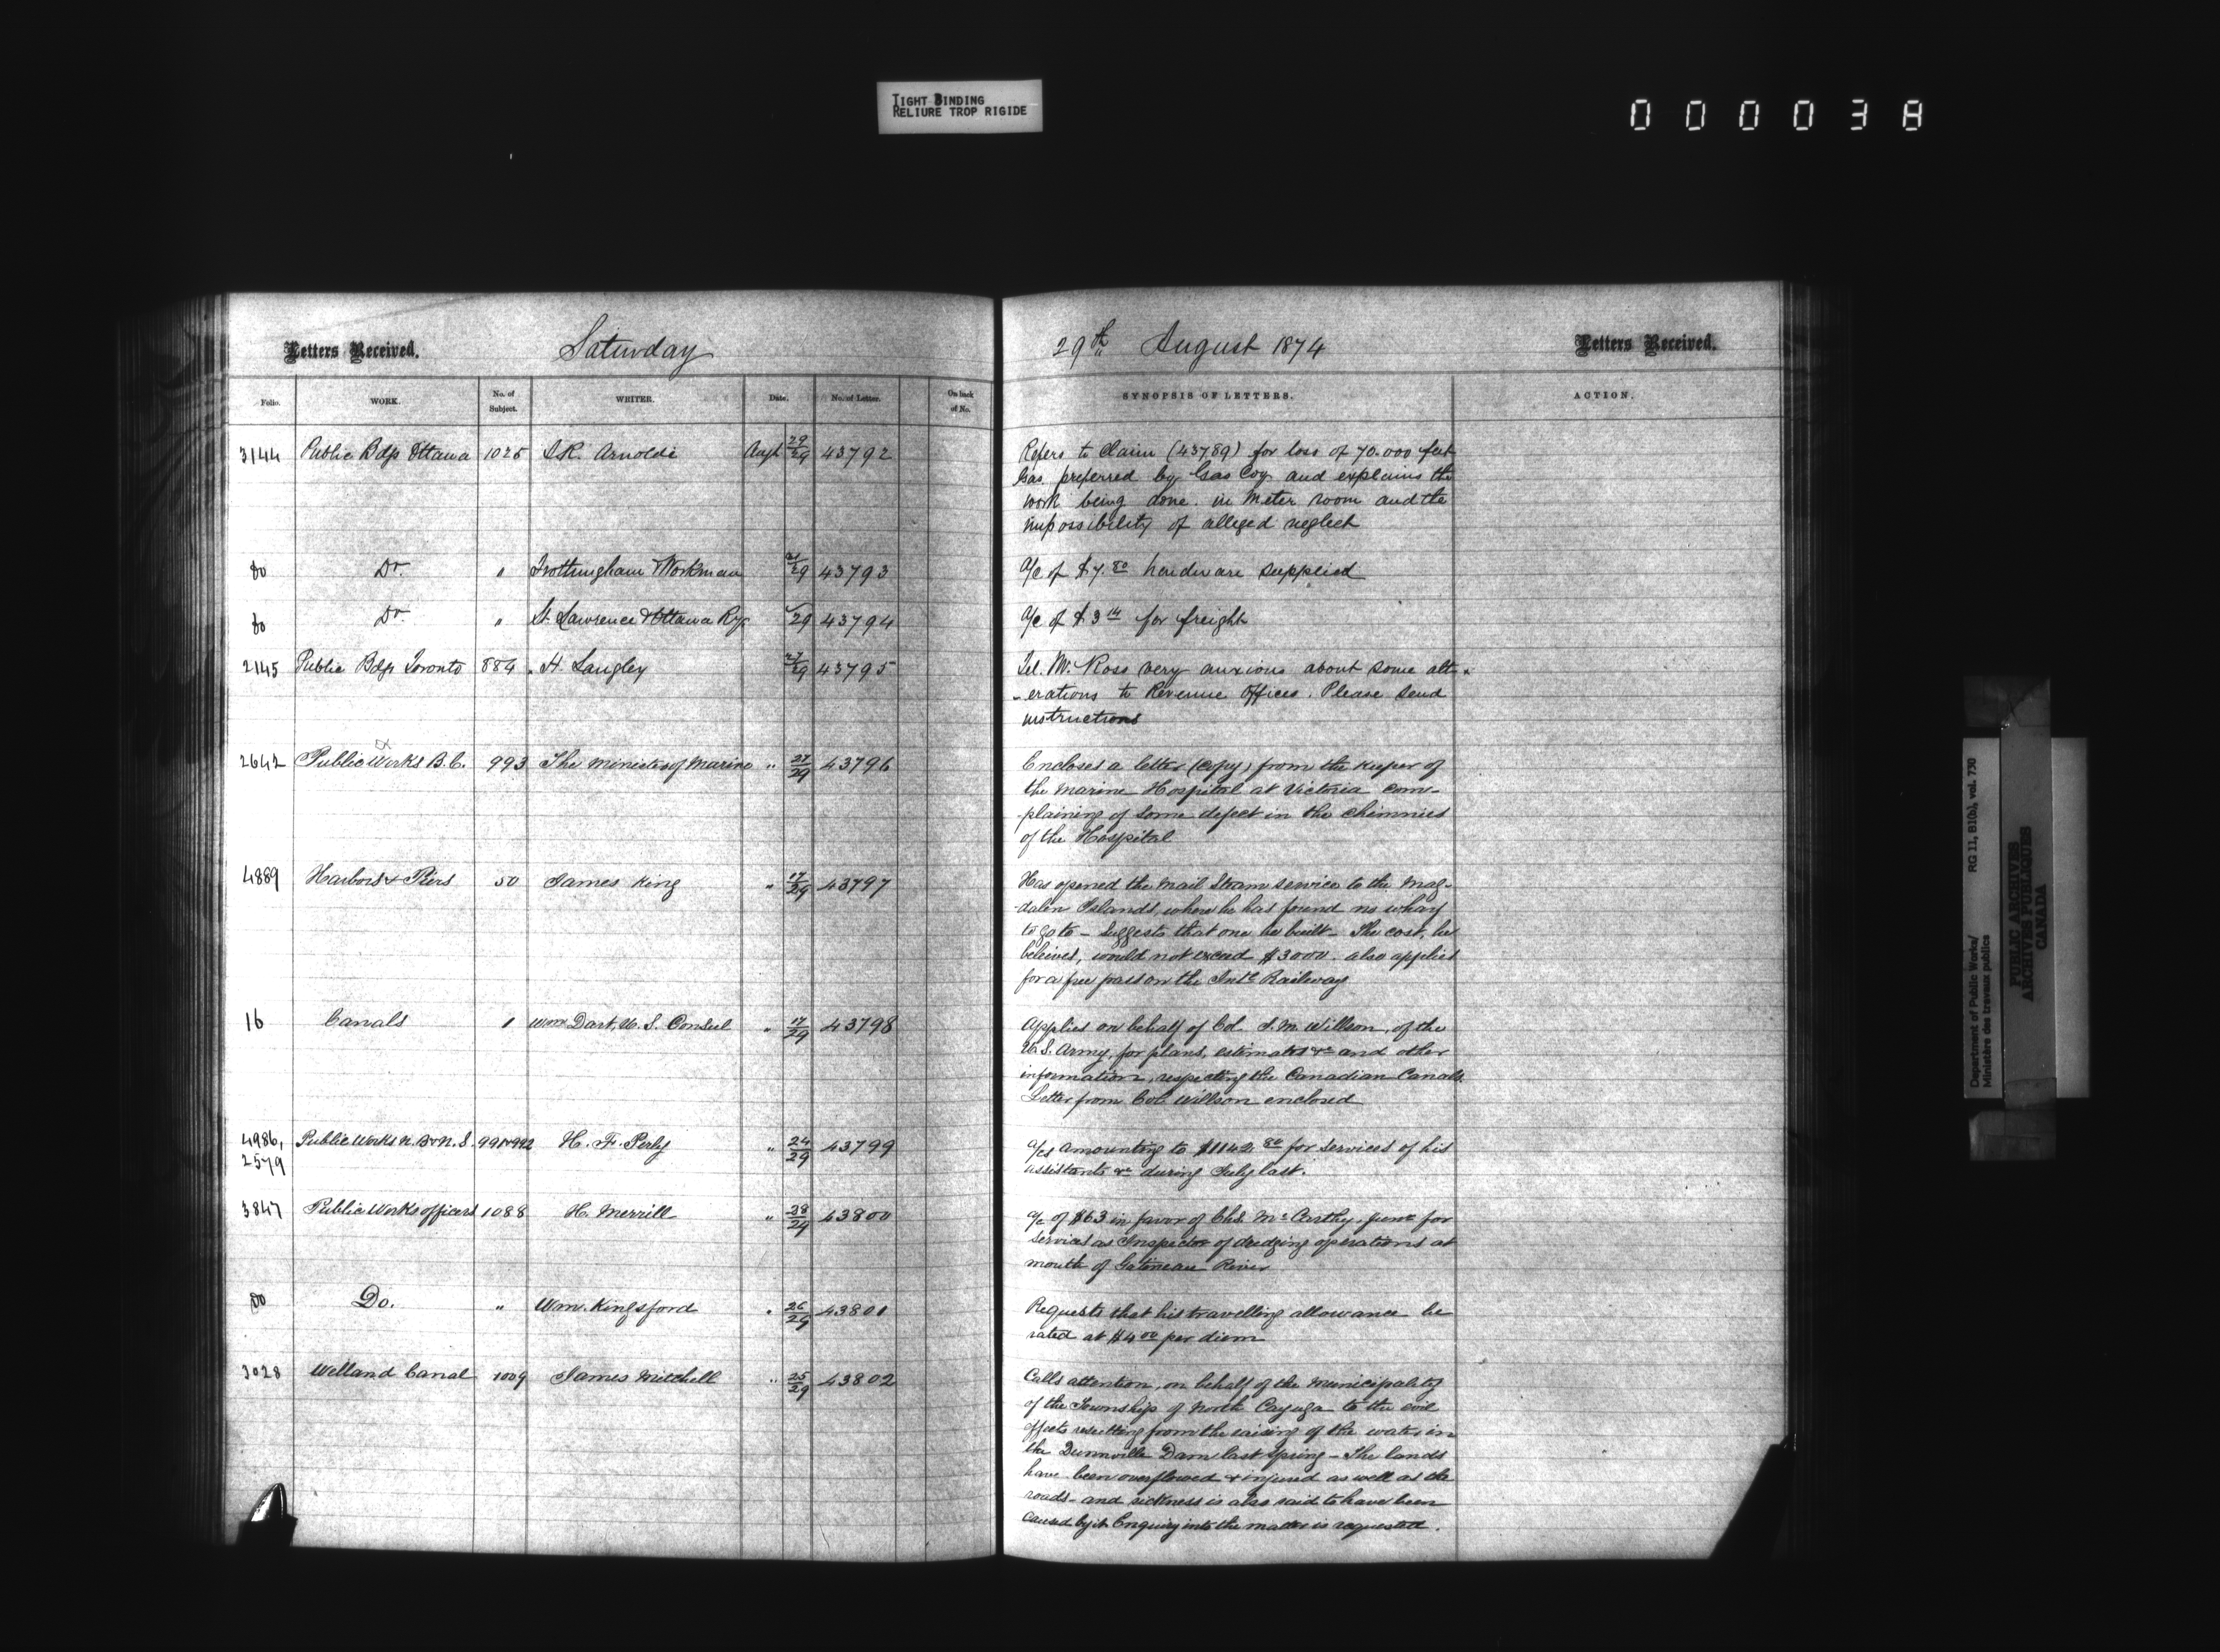 TIGHT BINDING
RELIURE TROP RIGIDE
000038
Letters Received.
Saturday
29th August 1874
Letters Received.
Folio.
WORK.
No. of Subject.
WRITER.
Date.
No. of Letter.
On back of No.
SYNOPSIS OF LETTERS.
ACTION.
3144 Public Bdgs Ottawa 1025 J.R. Arnoldi Augt 29/29 43792
Refers to Claim (43789) for loss of 70.000 feet
Gas preferred by Gas Coy and explains the
work being done in meter room and the
impossibility of alleged neglect
Do Do " Frothingham & Workman 29 43793
a/c of $7.80 hardware supplied
Do Do " St. Lawrence & Ottawa Ry. 29 43794
a/c of $3 14 for freight
2145 Public Bdgs Toronto 884 H. Langley 27/29 43795
Tel. Mr. Ross very anxious about some alt-
-erations to Revenue Offices. Please send
instructions
2642 Public Works B.C. 993 The Minister of Marine " 27/29 43796
Encloses a letter (copy) from the keeper of
the Marine Hospital at Victoria com-
-plaining of some defect in the chimnies
of the Hospital
4889 Harbors & Piers 50 James King " 17/29 43797
Has opened the Mail Steam service to the Mag-
-dalen Islands, where he has found no wharf
to go to - Suggests that one be built - The cost, he
believes, would not exceed $3000. also applies
for a free pass on the Intl Railway
16 Canals 1 Wm Dart, U.S. Consul " 17/29 43798
Applies on behalf of Col. J.M. Willson, of the
U.S. Army, for plans, estimates &c and other
information, respecting the Canadian Canals.
Letter from Col. Willson enclosed
4986, 2579 Public Works N.B & N.S. 991 & 992 H. F. Perly " 24/29 43799
a/cs amounting to $1142.80 for services of his
assistants &c during July last.
3847 Public Works officers 1088 H. Merrill " 28/29 43800
a/c of $63 in favor of Chs. McCarthy, junr for
services as Inspector of dredging operations at
mouth of Gatineau River
Do Do. " Wm. Kingsford " 26/29 43801
Requests that his travelling allowance be
rated at $4 00 per diem
3028 Welland Canal 1009 James Mitchell " 25/29 43802
Calls attention, on behalf of the Municipality
of the Township of North Cayuga to the evil
effects resulting from the raising of the water in
the Dunnville Dam last Spring - The lands
have been overflowed & injured as well as the
roads - and sickness is also said to have been
caused by it. Enquiry into the matter is requested.
Department of Public Works/ RG 11, B1(b), vol. 730
Ministère des travaux publics
PUBLIC ARCHIVES
ARCHIVES PUBLIQUES
CANADA